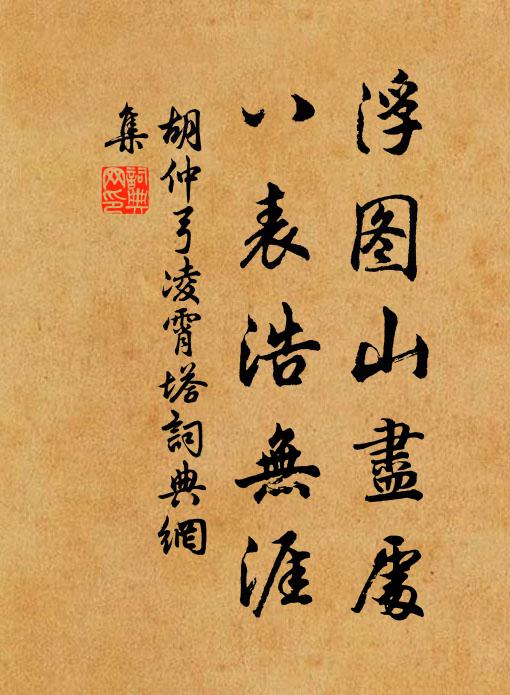 浮图山盡處
八表浩無涯
胡仲弓凌霄塔詞典網
集
詞典
网印